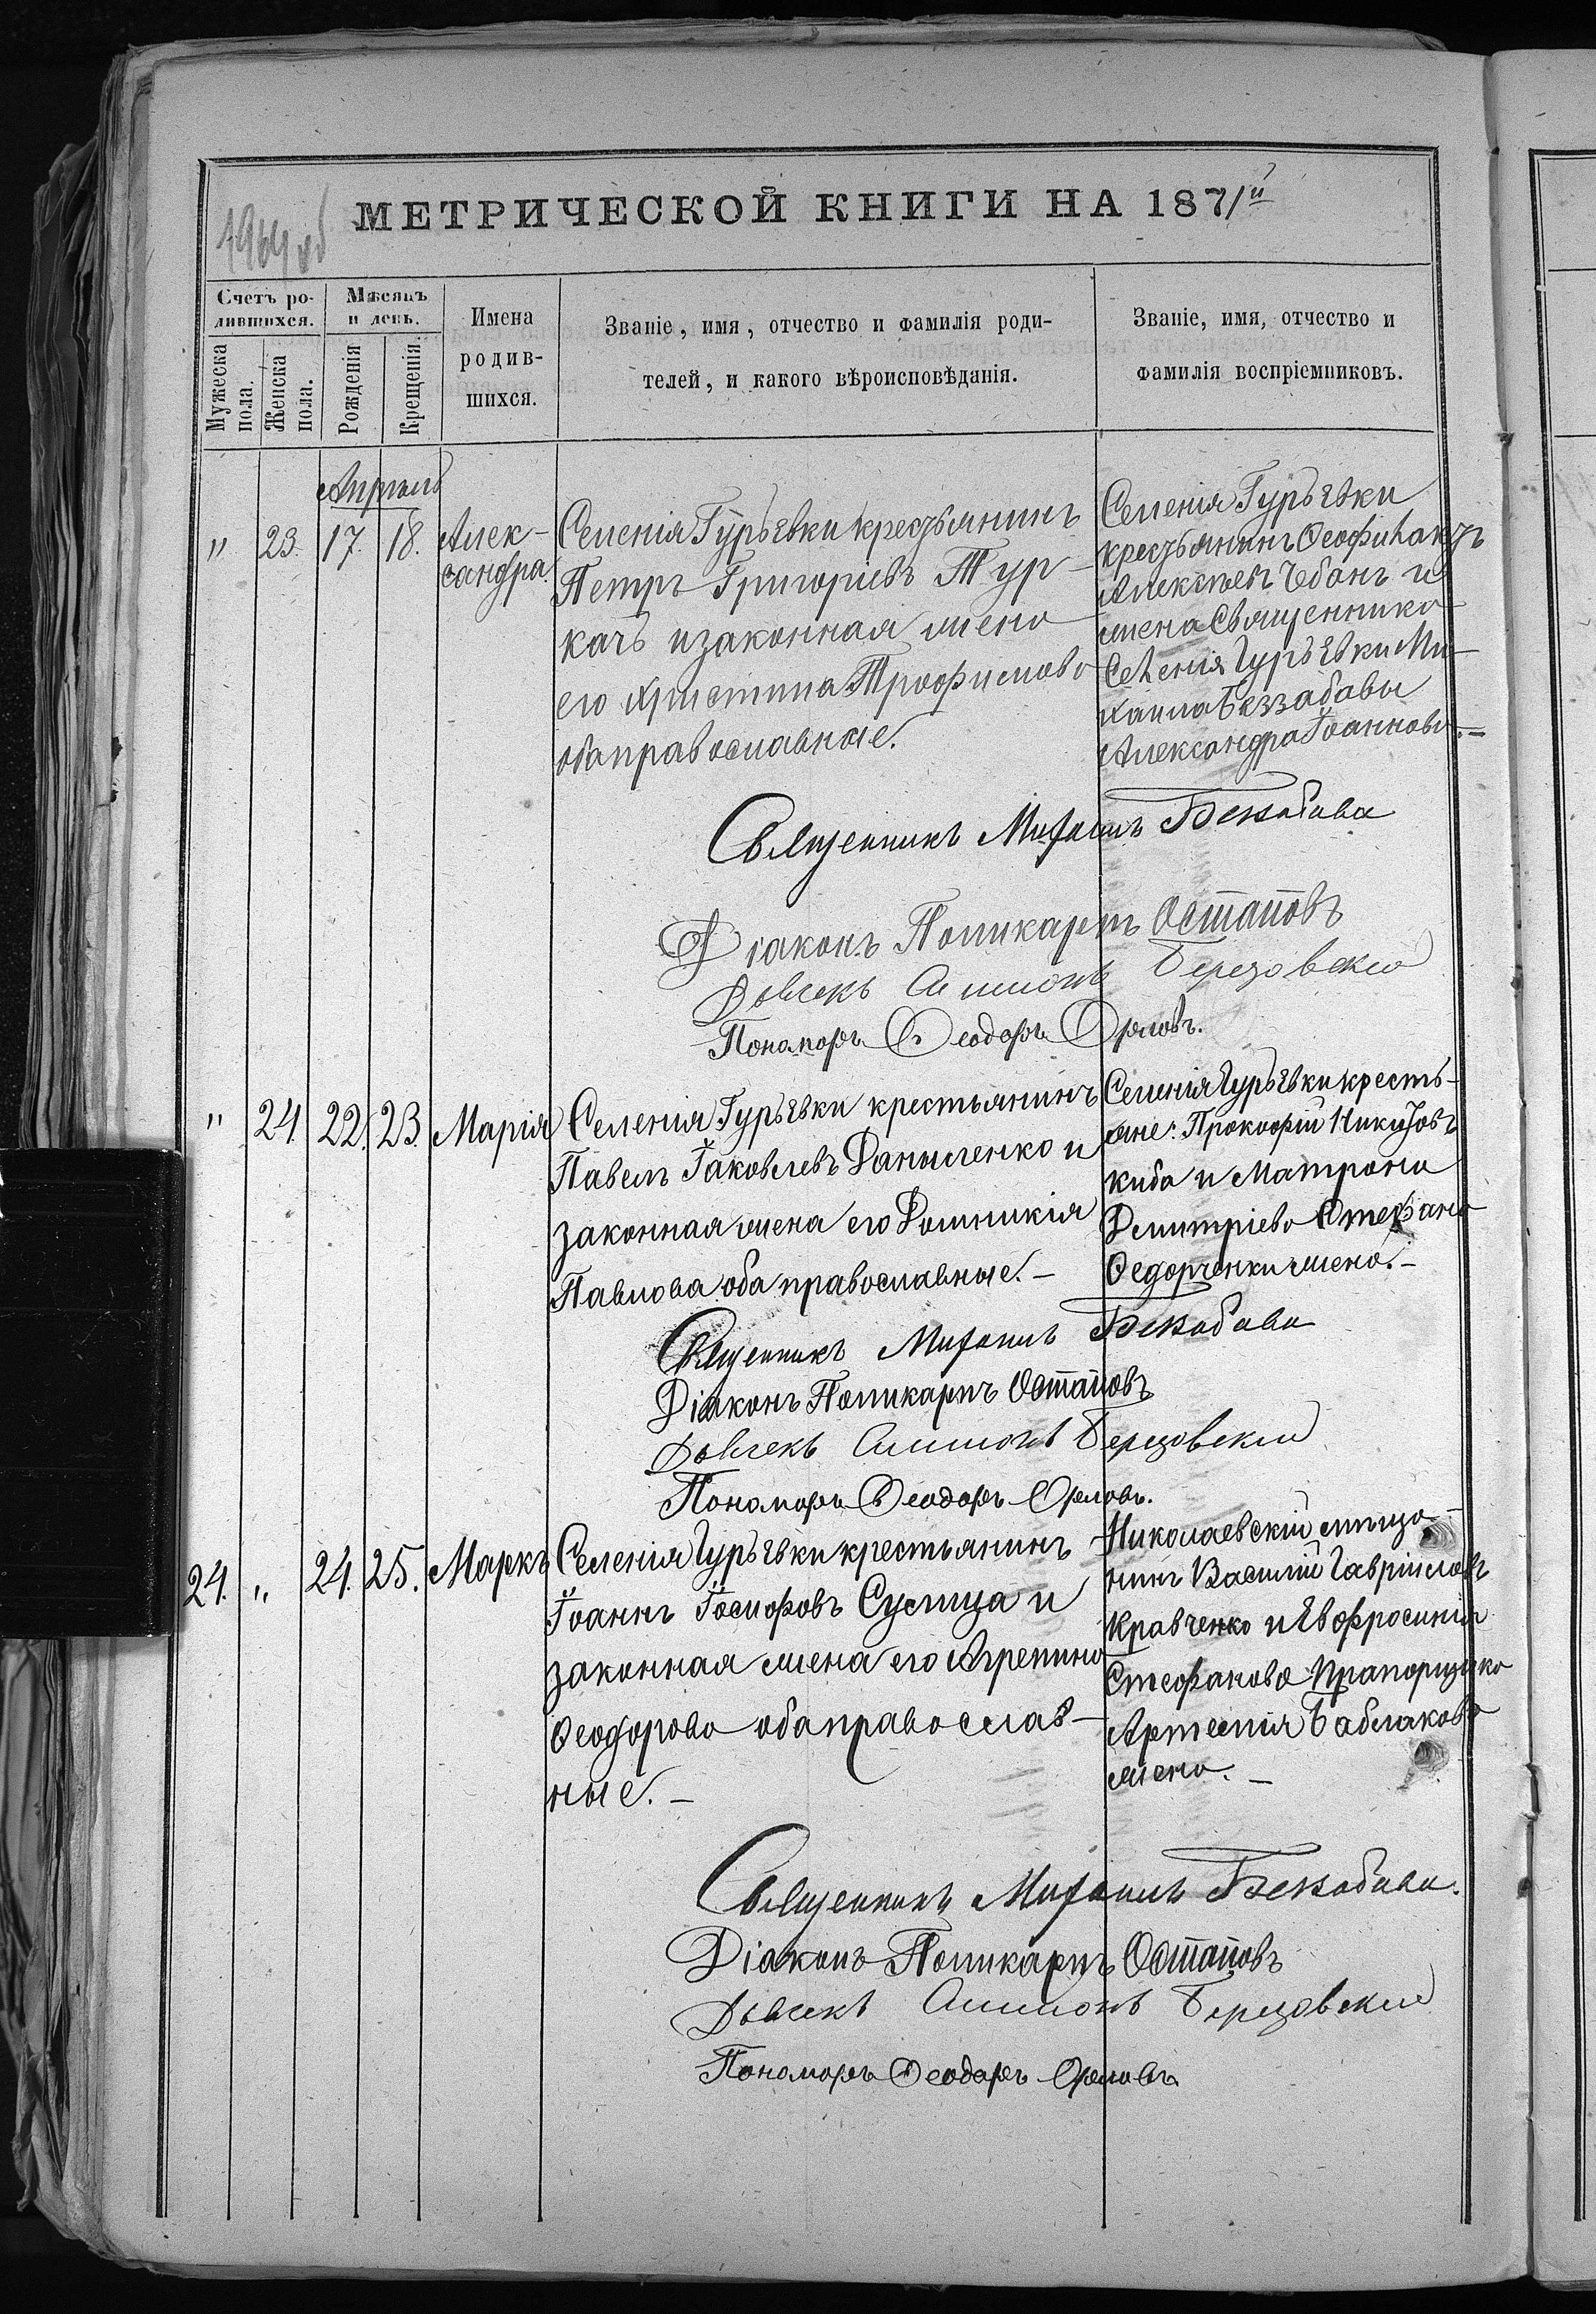 1964 об
МЕТРИЧЕСКОЙ КНИГИ НА 1871й
Счетъ ро-
дившихся.
Мужеска
пола.
Женска
пола.
Мѣсяцъ
и день.
Рожденія
Крещенія.
Имена
родив-
шихся.
Званіе, имя, отчество и фамилія роди-
телей, и какого вѣроисповѣданія.
Званіе, имя, отчество и
фамилія воспріемниковъ.
Апрѣль
" 23. 17. 18. Алек-
сандра
Селенія Гурьевки крестьянинъ
Петръ Григоріевъ Тур-
качъ и законная жена
его Христина Трофимова
оба православные.
Селенія Гурьевки
крестьянинъ Ѳеофилактъ
Алексѣевъ Чбанъ и
жена Священника
Селенія Гурьевки Ми-
хаила Беззабавы
Александра Іоаннова.-
Священникъ Михаилъ Беззабава
Діаконъ Поликарпъ Остаповъ
Дьячекъ Симеонъ Березовскій
Пономаръ Ѳеодоръ Орловъ.
" 24. 22. 23. Марія
Селенія Гурьевки крестьянинъ
Павелъ Іаковлевъ Даныленко и
законная жена его Домникія
Павлова оба православные.-
Селенія Гурьевки кресть-
яне: Прокофій Никитовъ
Киба и Матрона
Дмитріева Стефана
Ѳедорченки жена.-
Священникъ Михаилъ Беззабава
Діаконъ Поликарпъ Остаповъ
Дьячекъ Симеонъ Березовскій
Пономаръ Ѳеодоръ Орловъ.
24. " 24. 25. Маркъ
Селенія Гурьевки крестьянинъ
Іоаннъ Іосифовъ Сулица и
законная жена его Агрепина
Ѳеодорова оба православ-
ные.-
Николаевскій мѣща-
нинъ Василій Гавріиловъ
Кравченко и Евфросинія
Стефанова Прапорщика
Артемія Баблакова
жена.-
Священникъ Михаилъ Беззабава.
Діаконъ Поликарпъ Остаповъ
Дьячекъ Симеонъ Березовскій
Пономаръ Ѳеодоръ Орловъ